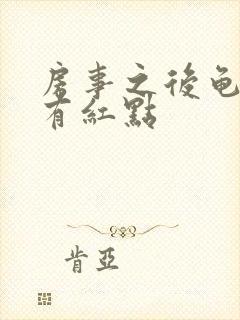 房事之後龟
有紅點
肯亞